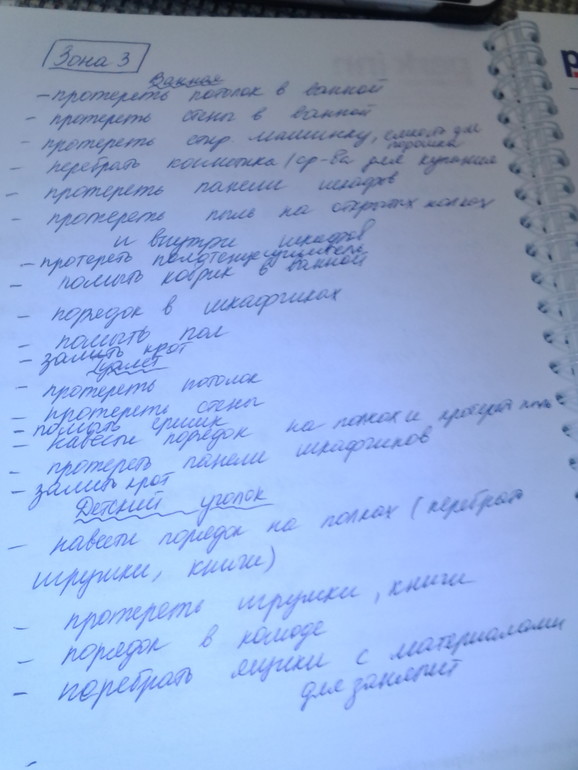 Зона 3
Ванная
- протереть потолок в ванной
- протереть стены в ванной
- протереть стир. машинку, емкость для порошка
- перебрать косметика / ср-ва для купания
- протереть панели шкафов
- протереть пыль на открытых полках
и внутри шкафов
- протереть полотенцесушитель
- помыть коврик в ванной
- порядок в шкафчиках
- помыть пол
- залить крот
Туалет
- протереть потолок
- протереть стены
- помыть ершик
- навести порядок на полках и протереть пыль
- протереть панели шкафчиков
- залить крот
Детский уголок
- навести порядок на полках (перебрать
игрушки, книги)
- протереть игрушки, книги
- порядок в комоде
- перебрать ящики с материалами
для занятий
park inn